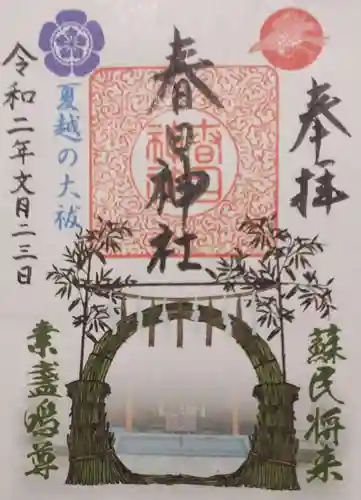 奉拝
春日神社
夏越の大祓
令和二年文月二三日
蘇民将来
素盞嗚尊